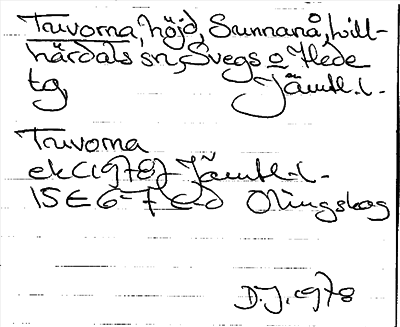 Truvorna, höjd, Sunnanå, Lill-
härdals sn, Svegs o Hede
tg, Jämtl.l.
Truvorna
ek (1978) Jämtl.l.
15E 6-7 c-d Olingskog
D.J. 1978